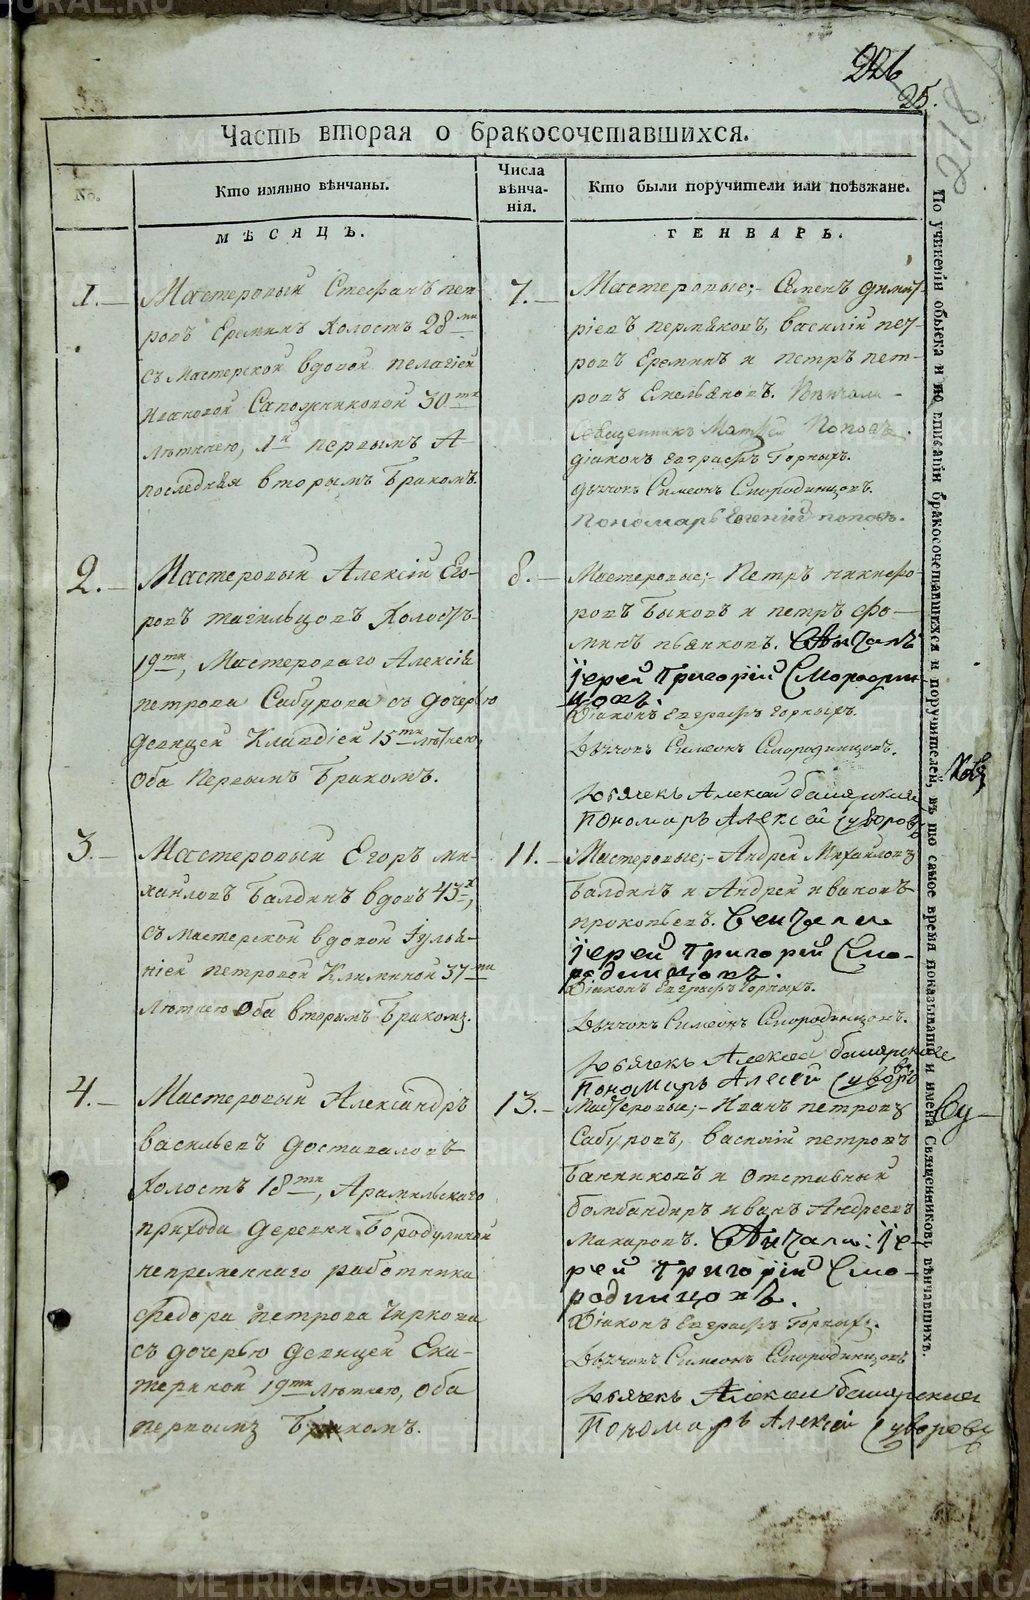 226
25.
218
Часть вторая о бракосочетавшихся.
No.
Кто имянно вѣнчаны.
Числа вѣнча-нія.
Кто были поручители или поѣзжане.
МѢСЯЦЪ.
ГЕНВАРЬ.
1.
Мастеровый Стефанъ пет
ровъ Ереминъ Холостъ 28ми
съ Мастерской вдовой пелагіей
Ивановой Сапожниковой 30ти
лѣтнею, 1й первымъ А
последняя вторымъ Бракомъ.
7.
Мастеровые;- Семенъ димит
ріевъ пермяковъ, василій пет
ровъ Ереминъ и петръ пет-
ровъ Емельяновъ. Вѣнчали
Священникъ Матвей Поповъ.
діаконъ евграфъ Горныхъ.
дьячокъ Симеонъ Смородинцовъ.
Пономарь Евгеній поповъ.
2.
Мастеровый Алексій Его-
ровъ тагильцовъ Холостъ
19ти, Мастероваго Алексія
петрова Сабурова съ дочерью
девицей Клавдіей 15ти лѣтнею,
Оба Первымъ Бракомъ.
8.
Мастеровые;- Петръ никифо
ровъ Быковъ и петръ фо-
минъ пьянковъ. Вѣнчалъ
іерей Григорій Смородин
цовъ.
Діаконъ Евграфъ Горныхъ.
Дьячокъ Симеонъ Смородинцовъ.
Дьячекъ Алексей башарскихъ
Пономарь Алексей Суворовъ
3.
Мастеровый Егоръ ми-
хайловъ Балдинъ вдовъ 43х,
съ мастерской вдовой Іулья-
ніей петровой Климиной 37ми
Лѣтнею Оба вторымъ Бракомъ.
11.
Мастеровые;- Андрей Михайловъ
Балдинъ и Андрей ивановъ
прокопьевъ. Венчали
іерей Григорій Смо-
родинцовъ.
Діаконъ Евграфъ Горныхъ.
Дьячокъ Симеонъ Смородинцовъ.
Дьячекъ Алексей башарскихъ
Пономарь Алесей Суворовъ
4.
Мастеровый Александръ
васильевъ Достоваловъ
Холостъ 18ти, Арамильскаго
прихода Деревни Бородулиной
непременнаго работника
Федора петрова Чиркова
съ дочерью девицей Ека-
териной 19ти Лѣтнею, Оба
первымъ Бракомъ.
13.
Мастеровые;- Иванъ петровъ
Сабуровъ, василій петровъ
Банниковъ и отставный
бомбандиръ иванъ Андреевъ
макаровъ. Вѣнчали: іе-
рей Григорій Смо-
родинцовъ.
Діаконъ Евграфъ Горныхъ.
Дьячокъ Симеонъ Смородинцовъ
Дьячекъ Алексей башарскихъ
Пономарь Алексей Суворовъ
По учиненіи обыска и по вписаніи бракосочетавшихся и поручителей, въ то самое время показывать и имена Священниковъ вѣнчавшихъ.
METRIKI.GASO-URAL.RU